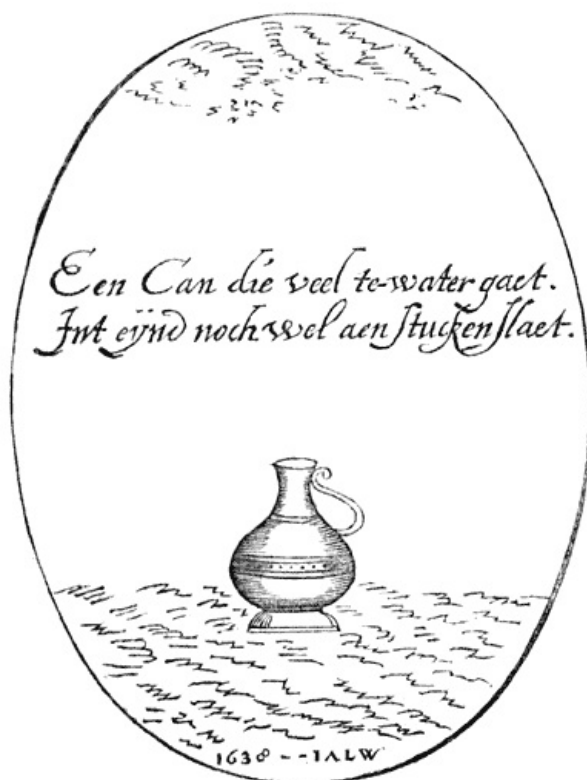 Een Can die veel te-water gaet.
Int eÿnd noch wel aen stucken slaet.
1638 -- IALW